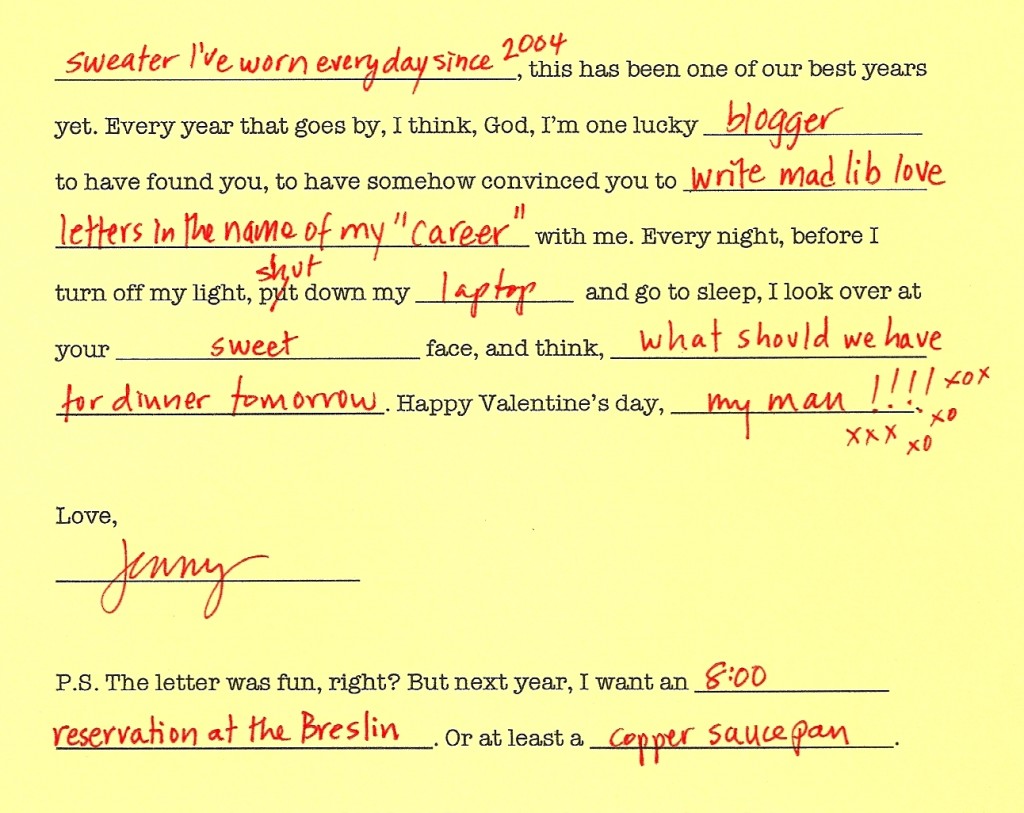 sweater I've worn everyday since 2004, this has been one of our best years
yet. Every year that goes by, I think, God, I'm one lucky blogger
to have found you, to have somehow convinced you to write mad lib love
letters in the name of my "career" with me. Every night, before I
turn off my light, put shut down my laptop and go to sleep, I look over at
your sweet face, and think, what should we have
for dinner tomorrow. Happy Valentine's day, my man !!!! xox
xxx xo xo
Love,
Jenny
P.S. The letter was fun, right? But next year, I want an 8:00
reservation at the Breslin. Or at least a copper saucepan.